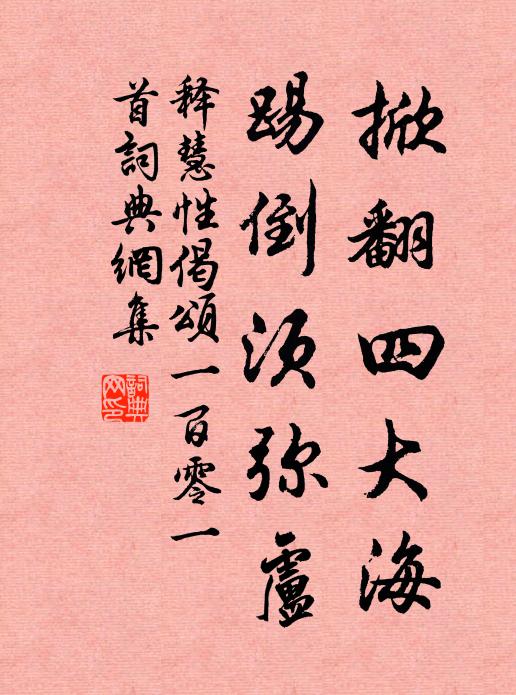 掀翻四大海
踢倒须弥盧
释慧性偈頌一百零一
首詞典網集
詞典网印